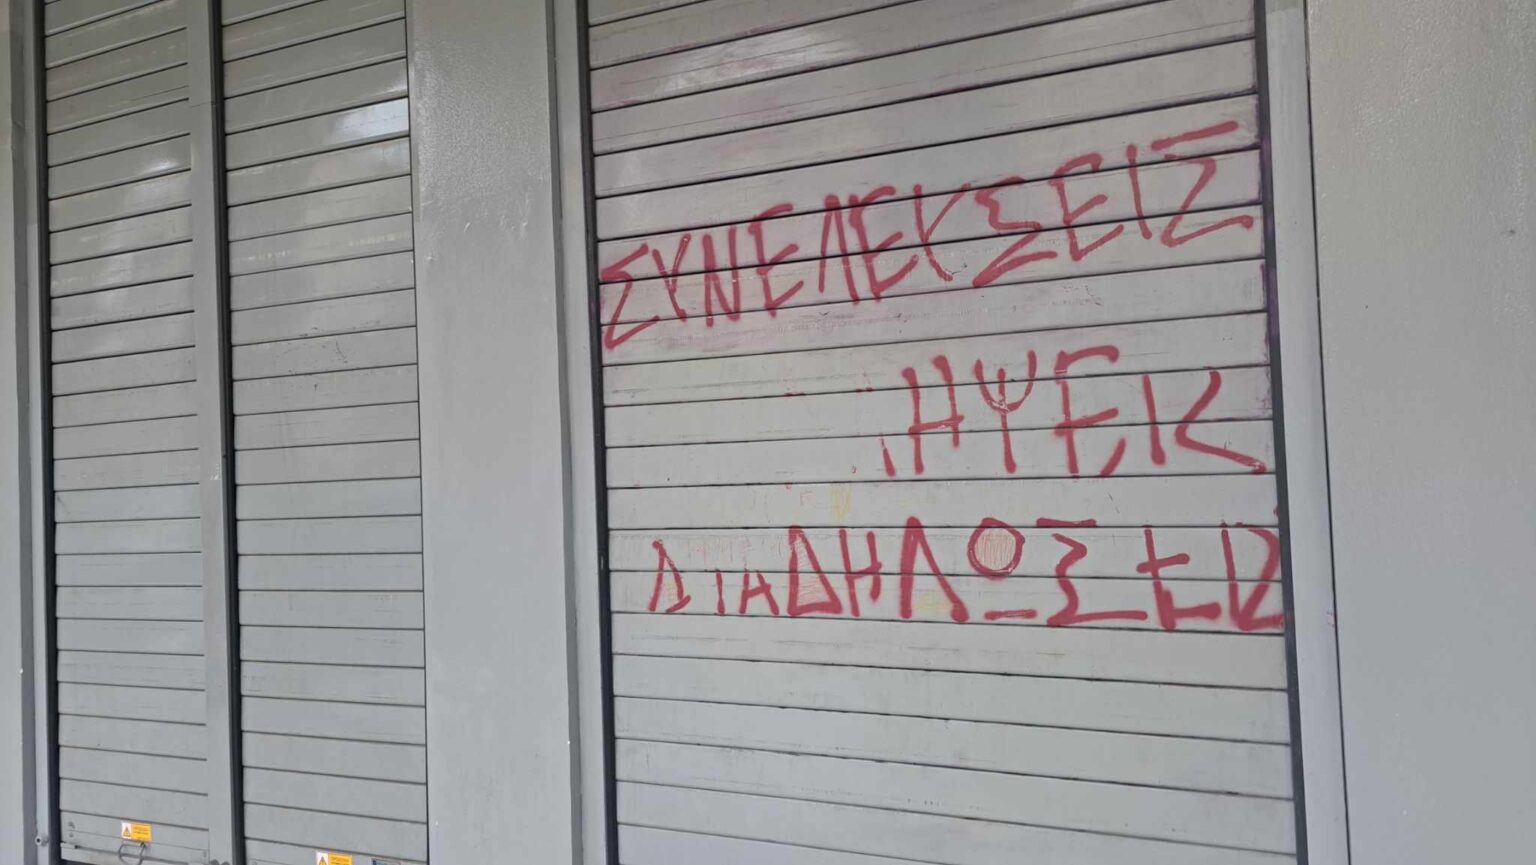 ΣΥΝΕΛΕΥΣΕΙΣ
ΗΨΕΙΣ
ΔΙΑΔΗΛΩΣΕΙΣ